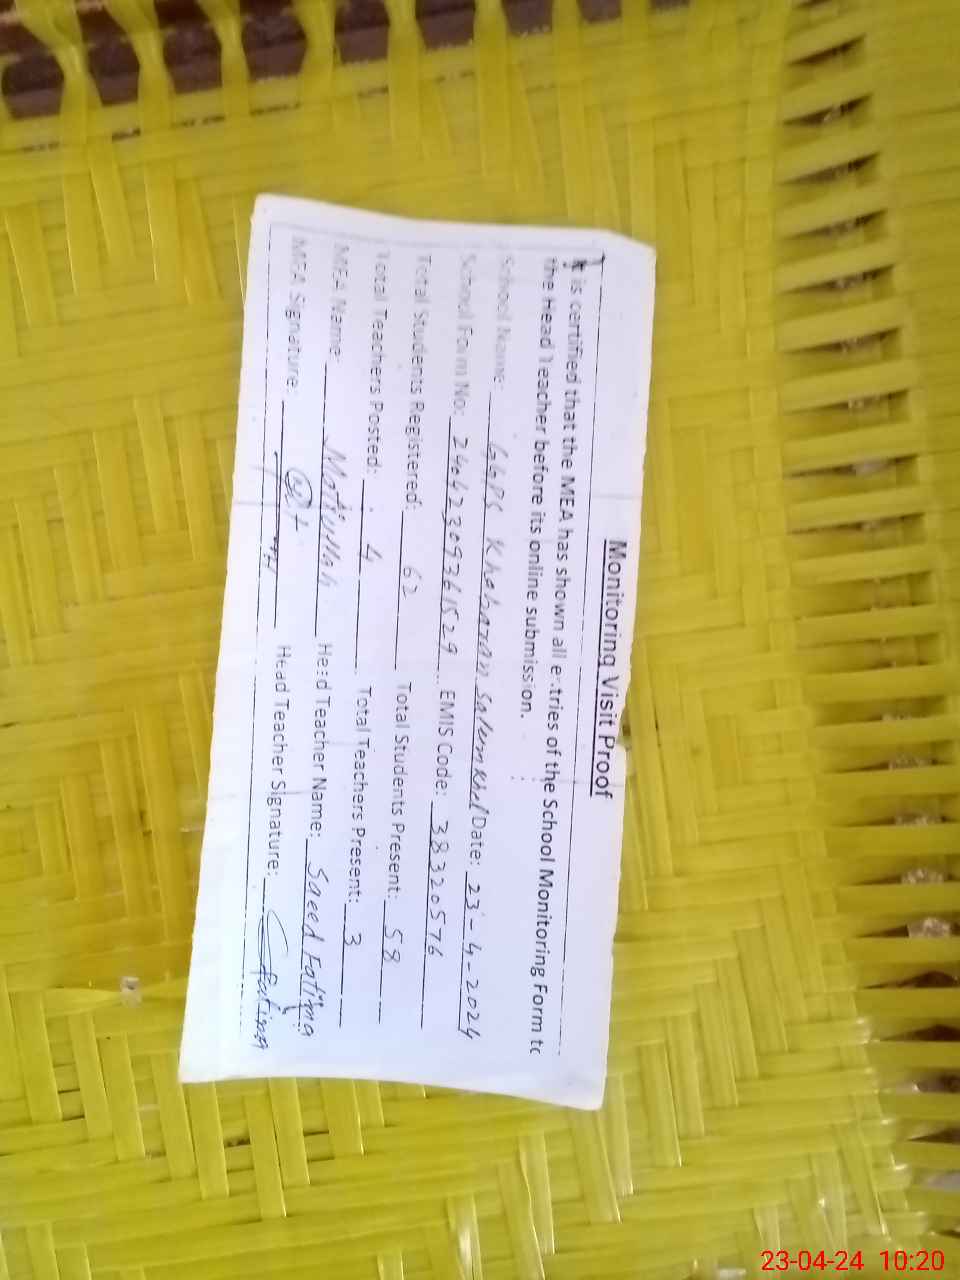 Monitoring Visit Proof
It is certified that the MEA has shown all entries of the School Monitoring Form to
the Head Teacher before its online submission.
School Name: GGPS Khoharan Salem Khel Date: 23-4-2024
School Form No: 24042309361529 EMIS Code: 38320576
Total Students Registered: 62 Total Students Present: 58
Total Teachers Posted: 4 Total Teachers Present: 3
MEA Name: Matiullah Head Teacher Name: Saeed Fatima
MEA Signature: Head Teacher Signature: Fatima
23-04-24 10:20